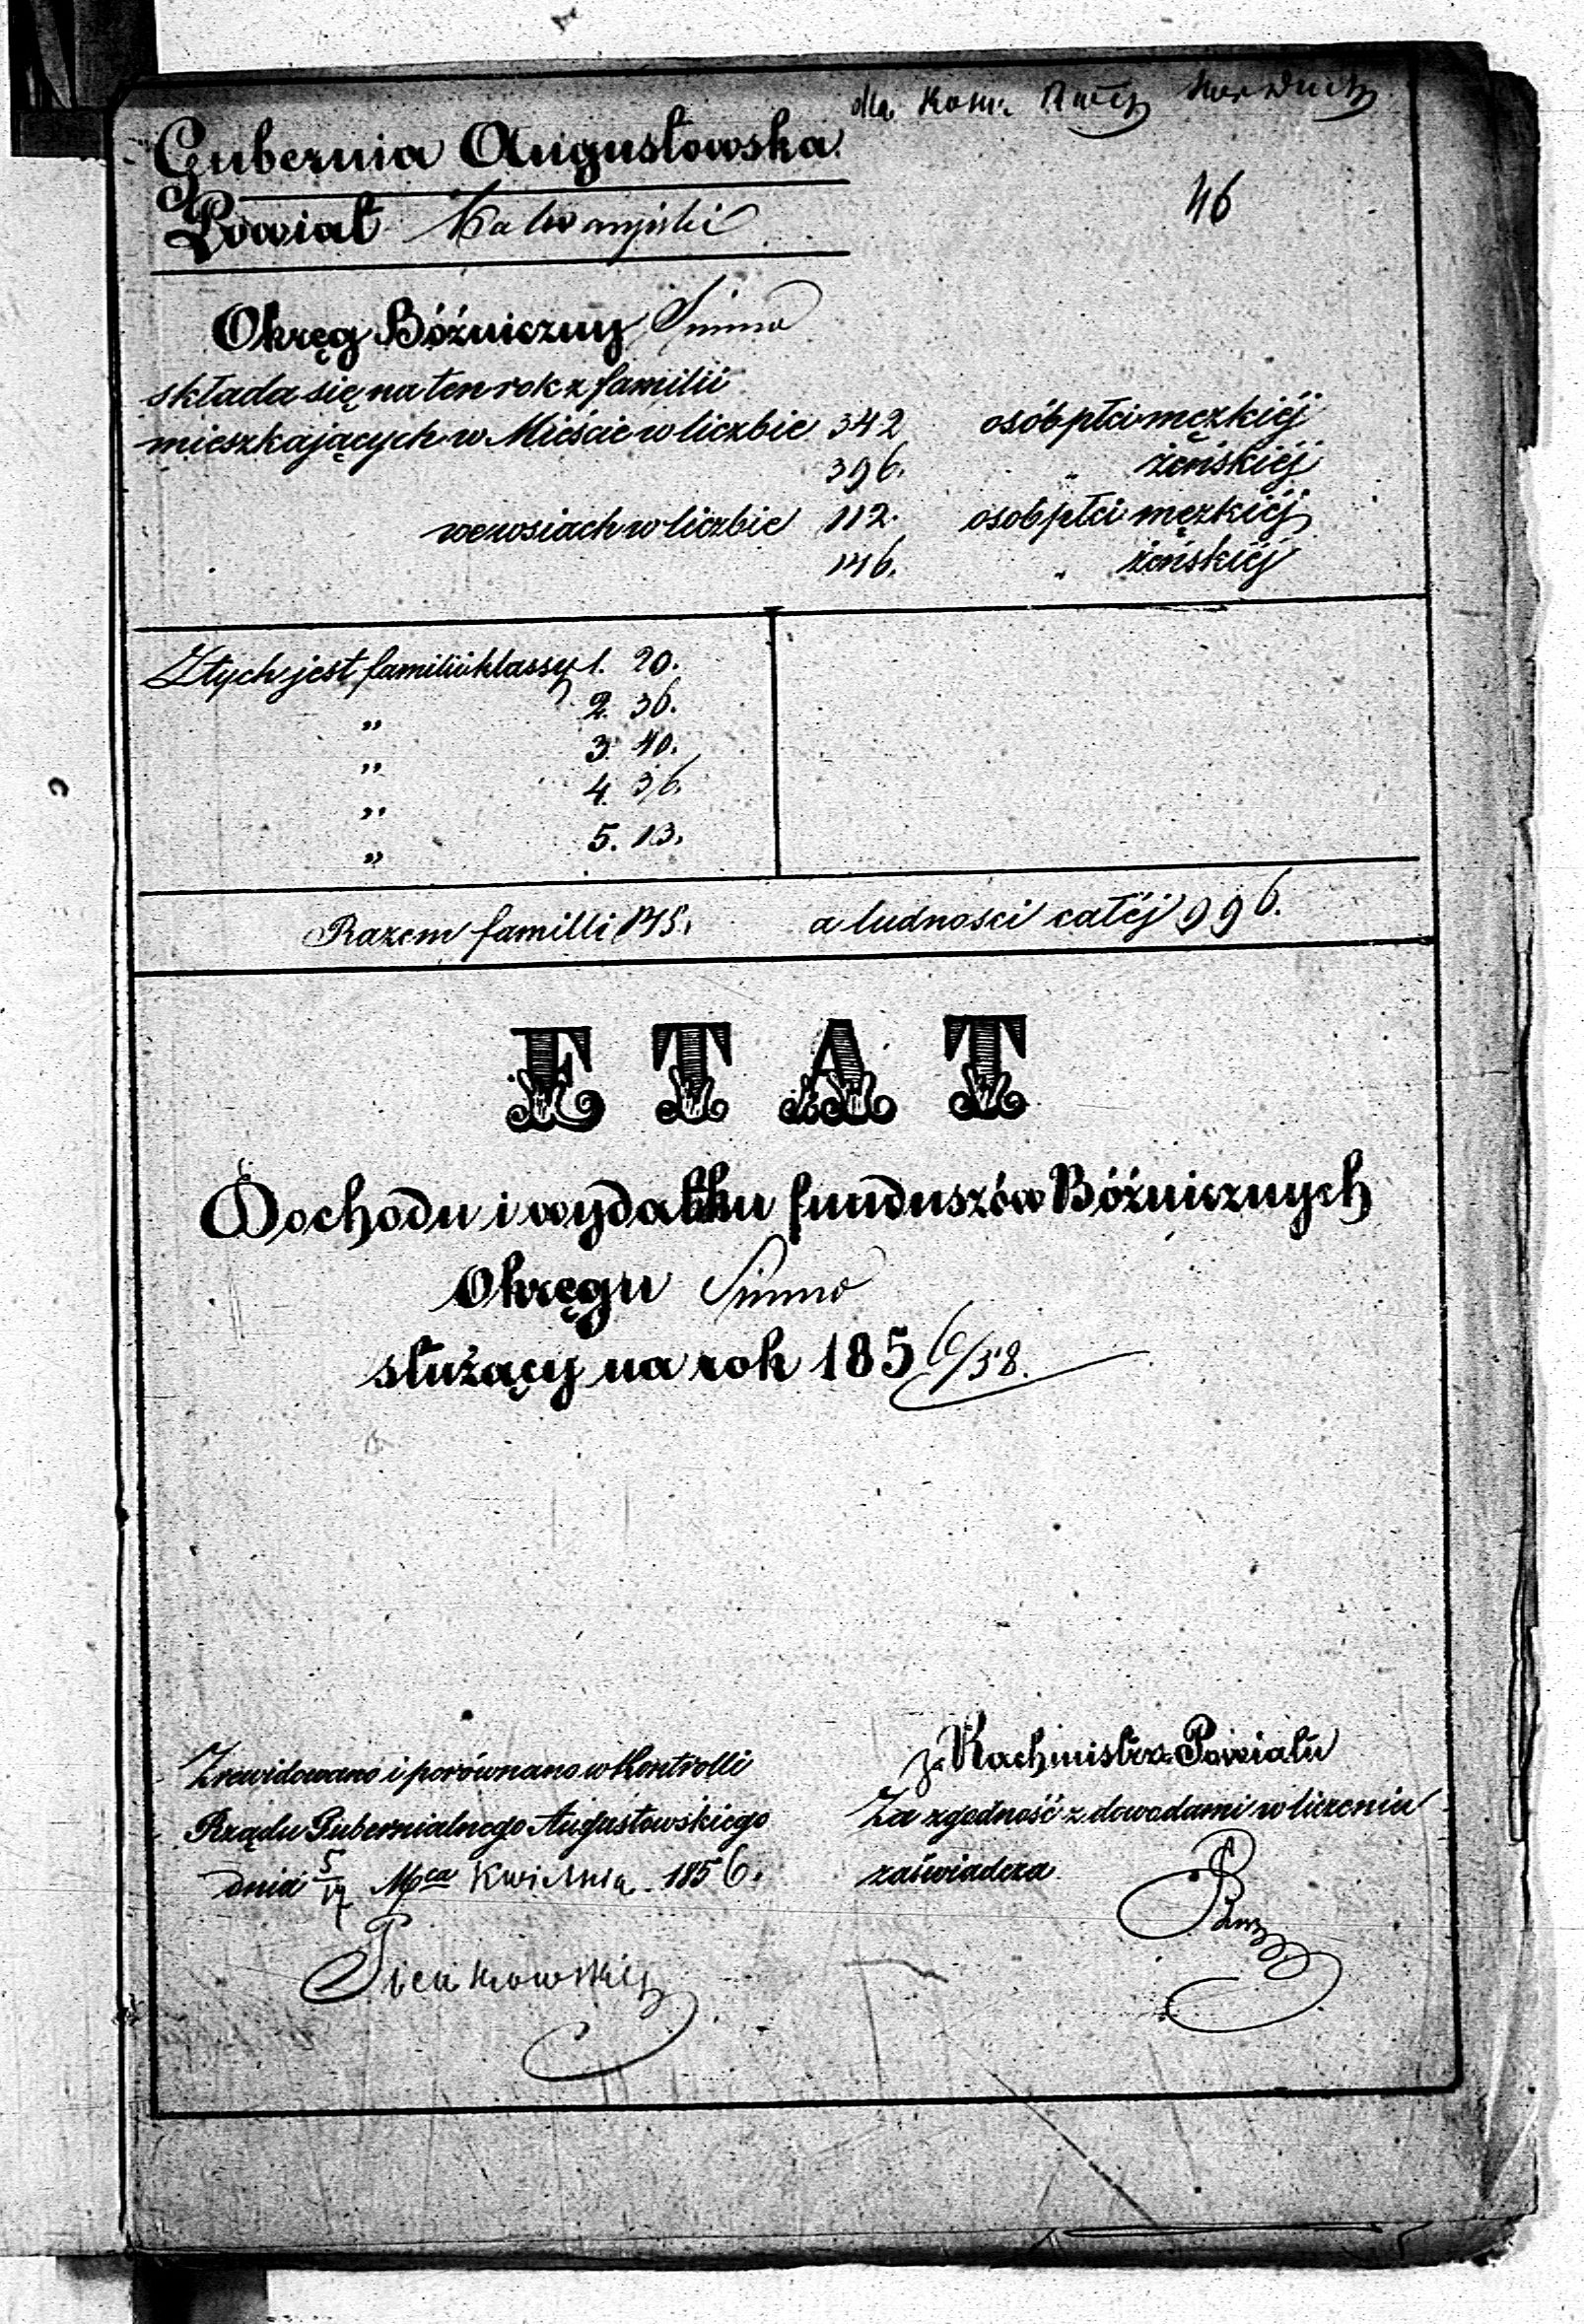 dla Kom:
Gubernia Augustowska.
46
Powiat Kalwaryjski
Okręg Bóżniczny Simno
składa się na ten rok z familii
mieszkających w Mieście w liczbie 342 osób płci męzkiéj
396. " żeńskiéj
we wsiach w liczbie 112. osob płci męzkiéj
146. " żeńskiéj
Z tych jest familii klassy 1. 20.
" 2. 36.
" 3. 40.
" 4. 36.
" 5. 13.
Razem familli 145. a ludności całéj 996.
ETAT
Dochodu i wydatku funduszów Bóżnicznych
Okręgu Simno
służący na rok 1856/58.
Zrewidowano i porównano w Kontrolli
Rządu Gubernialnego Augustowskiego
dnia 5/17 Mca Kwietnia 1856.
Pieńkowski
z. Rachmistrz Powiatu
Za zgodność z dowodami w liczeniu
zaświadcza